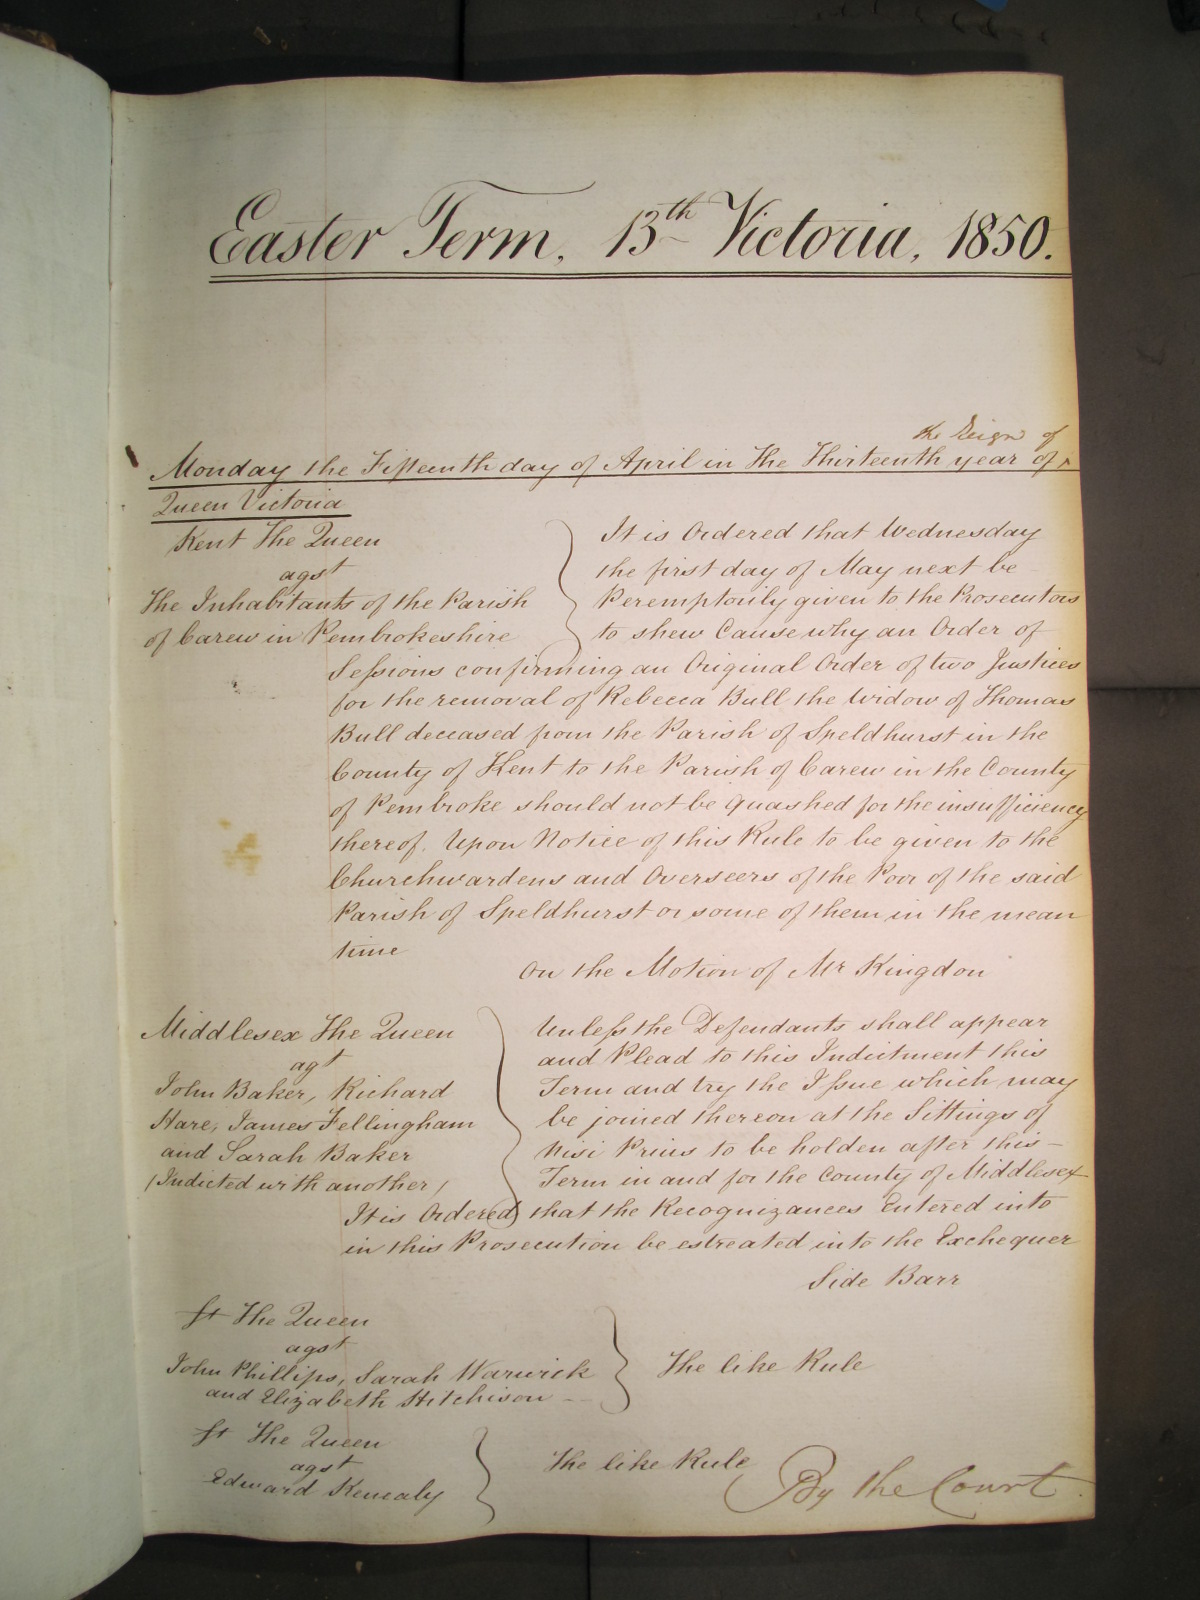 Easter Term, 13th Victoria, 1850.
the Reign of
Monday the Fifteenth day of April in the Thirteenth year of ^
Queen Victoria
Kent The Queen
agst
The Inhabitants of the Parish
of Carew in Pembrokeshire
It is Ordered that Wednesday
the first day of May next be
Peremptorily given to the Prosecutors
to shew Cause why an Order of
Sessions confirming an Original Order of two Justices
for the removal of Rebecca Bull the Widow of Thomas
Bull deceased from the Parish of Speldhurst in the
County of Kent to the Parish of Carew in the County
of Pembroke should not be quashed for the insufficiency
thereof. Upon Notice of this Rule to be given to the
Churchwardens and Overseers of the Poor of the said
Parish of Speldhurst or some of them in the mean
time
On the Motion of Mr Kingdon
Middlesex The Queen
agt
John Baker, Richard
Hare, James Fellingham
and Sarah Baker
(Indicted with another)
Unless the Defendants shall appear
and Plead to this Indictment this
Term and try the Issue which may
be joined thereon at the Sittings of
Nisi Prius to be holden after this
Term in and for the County of Middlesex
It is Ordered that the Recognizances Entered into
in this Prosecution be estreated into the Exchequer
Side Barr
The Queen
agst
John Phillips, Sarah Warwick
and Elizabeth Hitchison
The like Rule
The Queen
agst
Edward Kenealy
The like Rule
By the Court